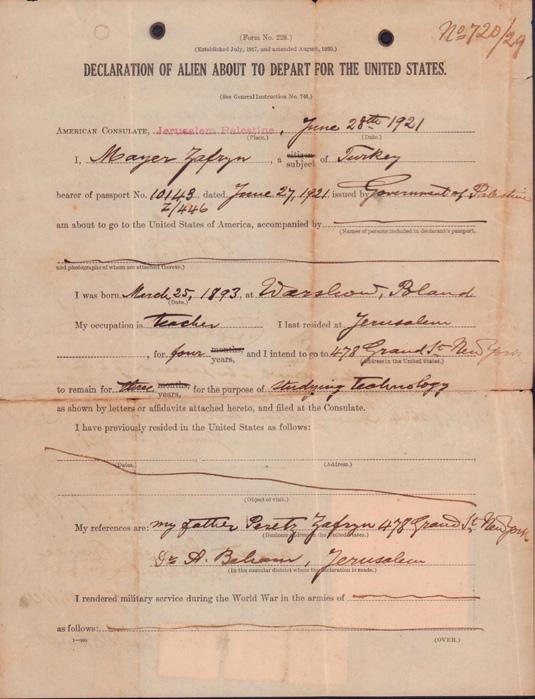 No 720/29
(Form No. 228.)
(Established July, 1917, and amended August, 1920.)
DECLARATION OF ALIEN ABOUT TO DEPART FOR THE UNITED STATES.
(See General Instruction No. 746.)
AMERICAN CONSULATE, Jerusalem Palestine, June 28th 1921
(Place.) (Date.)
I, Mayer Zafryn, a citizen subject of Turkey
bearer of passport No. 10143, dated June 27, 1921 issued by Government of Palestine
2/446
am about to go to the United States of America, accompanied by
(Names of persons included in declarant's passport,
and photographs of whom are attached thereto.)
I was born March 25, 1893, at Warshow, Poland
(Date.)
My occupation is teacher I last resided at Jerusalem
, for four months, years, and I intend to go to 478 Grand St New York
(Address in the United States.)
to remain for three months, years, for the purpose of studying technology
as shown by letters or affidavits attached hereto, and filed at the Consulate.
I have previously resided in the United States as follows:
(Dates.) (Address.)
(Object of visit.)
My references are: my father Peretz Zafryn 478 Grand St New York
(Business address in the United States.)
Dr A. , Jerusalem
(In the consular district where the declaration is made.)
I rendered military service during the World War in the armies of
as follows:
(OVER.)